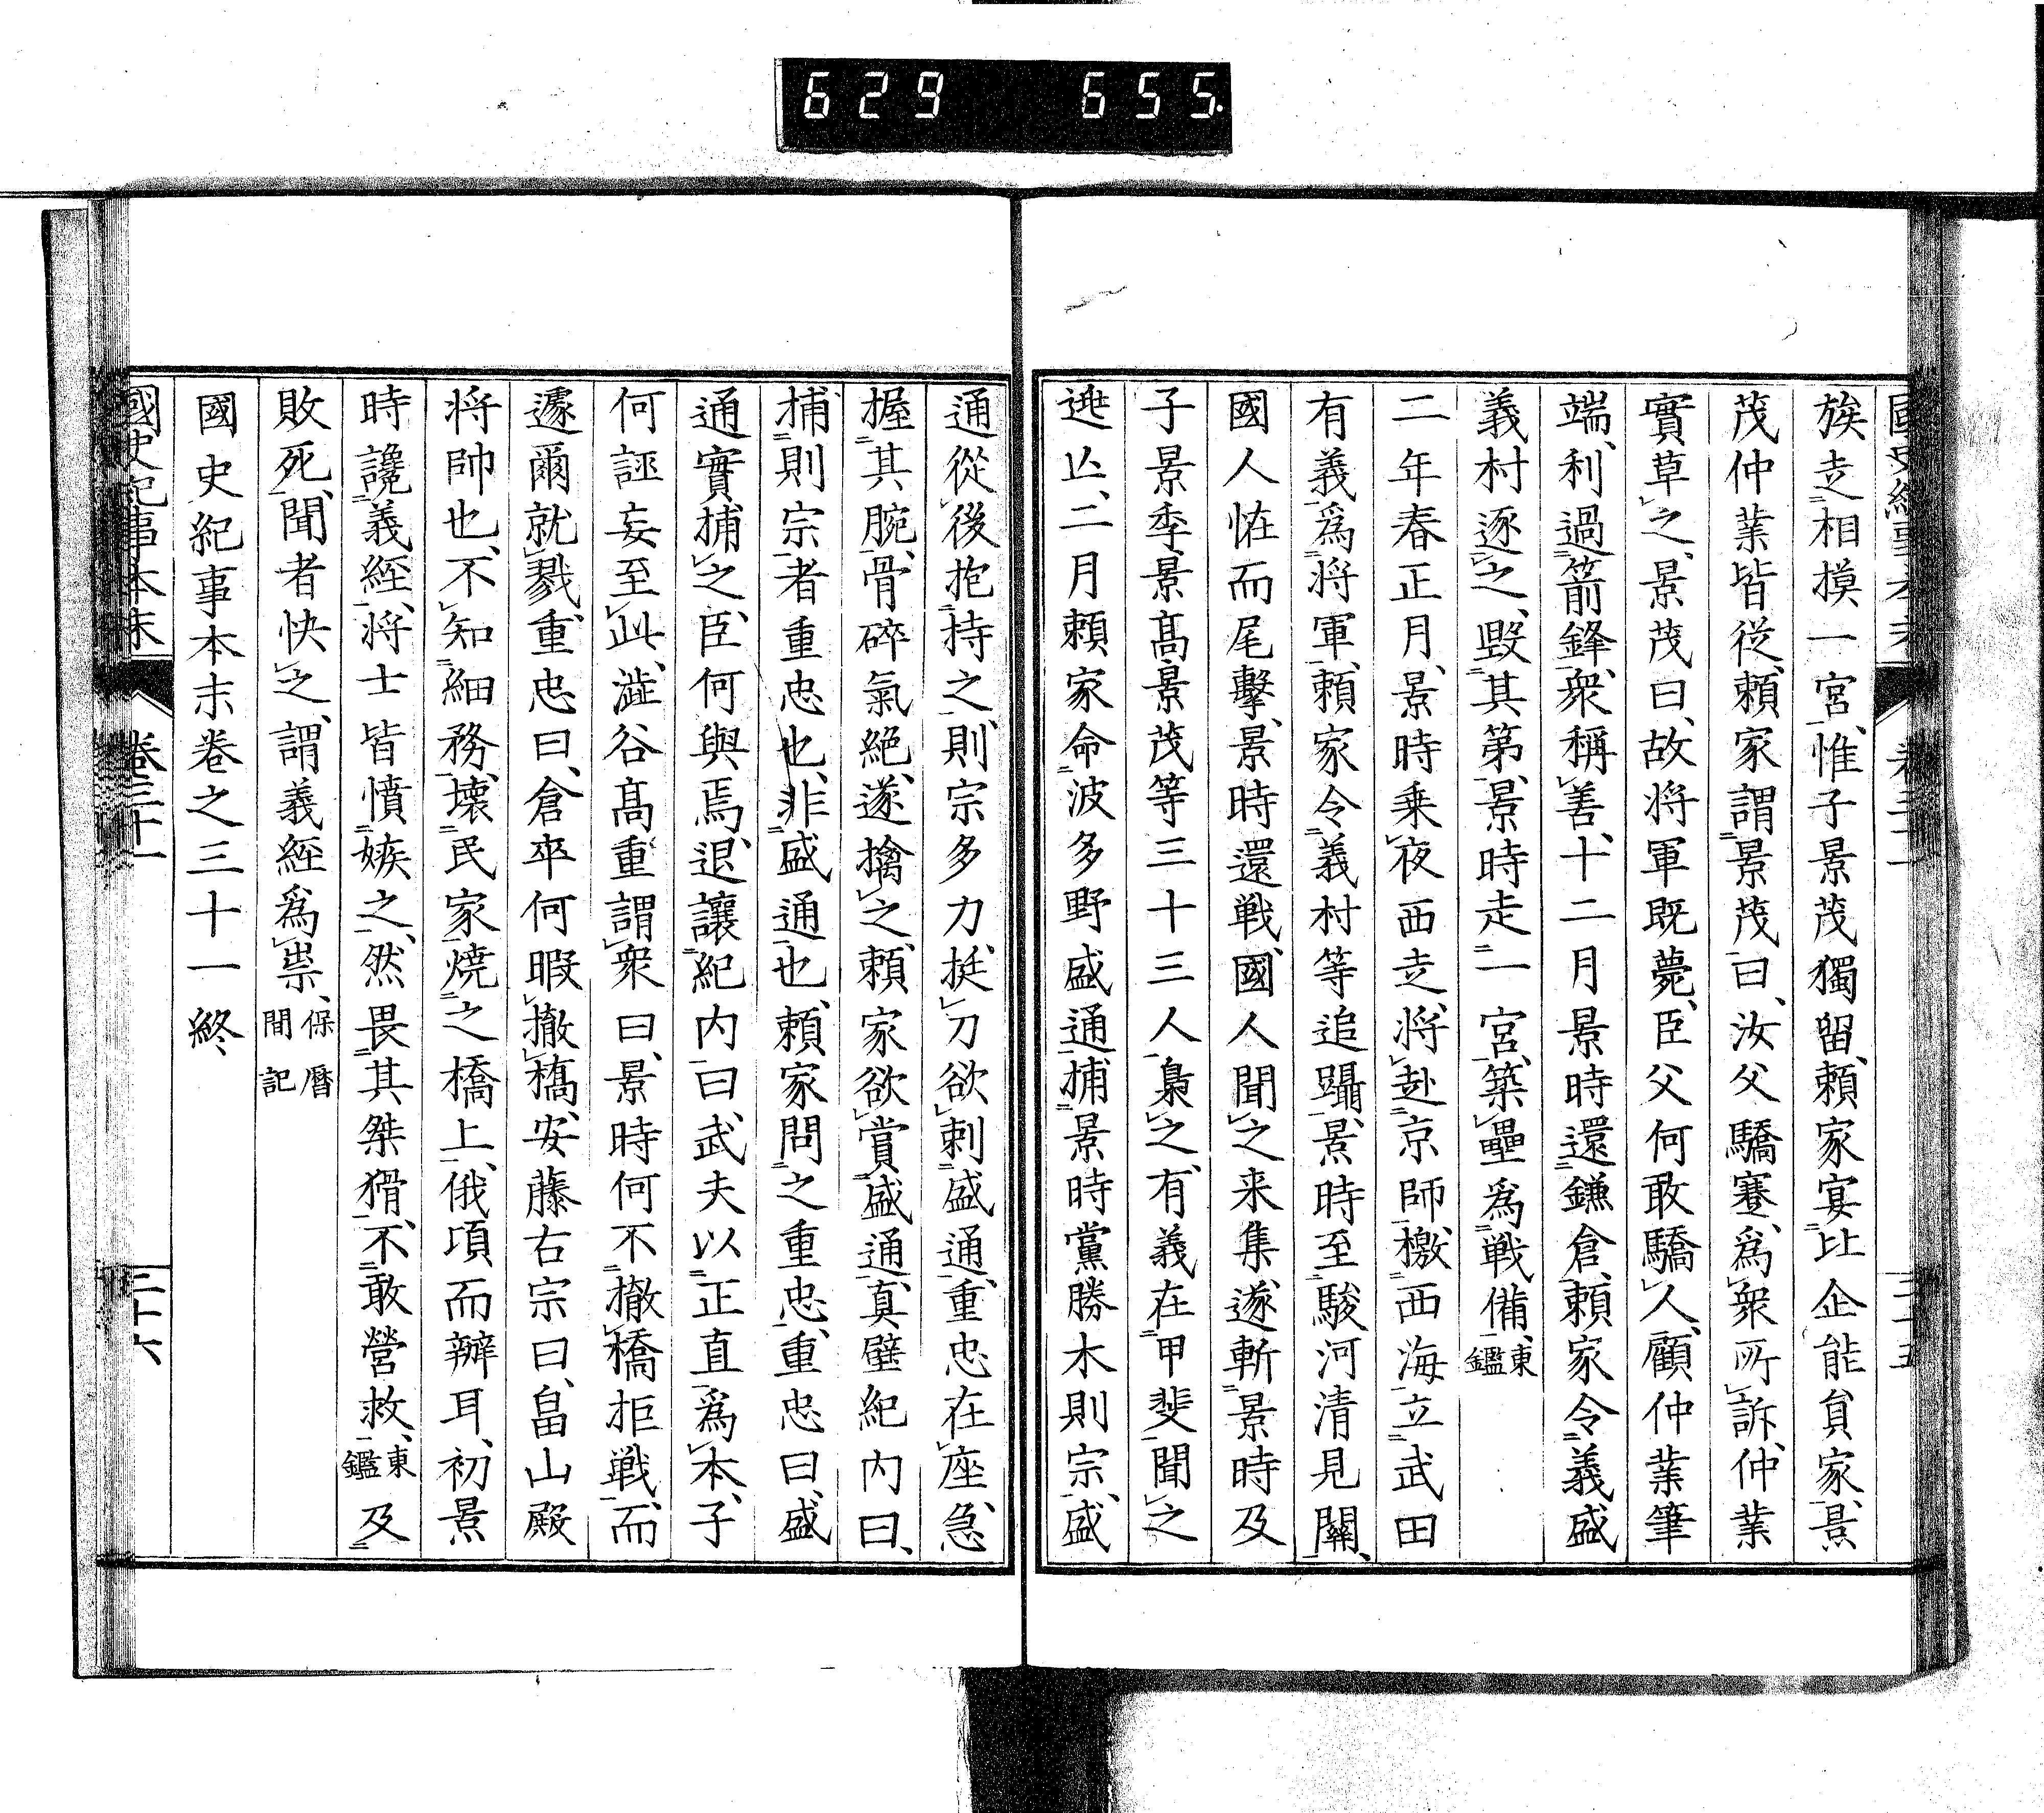 629 655.
國史紀事本末 卷三十一 二十五
族走相摸一宮、惟子景茂獨留、頼家宴比企能員家、景
茂仲業皆從、頼家謂景茂曰、汝父驕蹇、爲衆所訴、仲業
實草之、景茂曰、故将軍既薨、臣父何敢驕人、顧仲業筆
端、利過箭鋒、衆稱善、十二月景時還鎌倉、頼家令義盛
義村逐之、毀其第、景時走一宮、築壘爲戦備、東鑑
二年春正月、景時乗夜西走、将赴京師、檄西海立武田
有義爲将軍、頼家令義村等追躡、景時至駿河清見關、
國人恠而尾擊、景時還戦、國人聞之来集、遂斬景時及
子景季景髙景茂等三十三人梟之、有義在甲斐聞之
逃亾、二月頼家命波多野盛通捕景時黨勝木則宗、盛
通從後抱持之、則宗多力、挺刀欲刺盛通、重忠在座、急
握其腕、骨碎氣絶、遂擒之、頼家欲賞盛通、真壁紀内曰、
捕則宗者重忠也、非盛通也、頼家問之重忠、重忠曰、盛
通實捕之、臣何與焉、退讓紀内曰、武夫以正直爲本、子
何誣妄至此、澁谷髙重謂衆曰、景時何不撤橋拒戦、而
遽爾就戮、重忠曰、倉卒何暇撤橋、安藤右宗曰、畠山殿
将帥也、不知細務、壊民家燒之橋上、俄頃而辦耳、初景
時讒義經、将士皆憤嫉之、然畏其桀猾、不敢營救、東鑑及
敗死、聞者快之、謂義經爲祟、保暦間記
國史紀事本末卷之三十一終
國史紀事本末 卷三十一 二十六